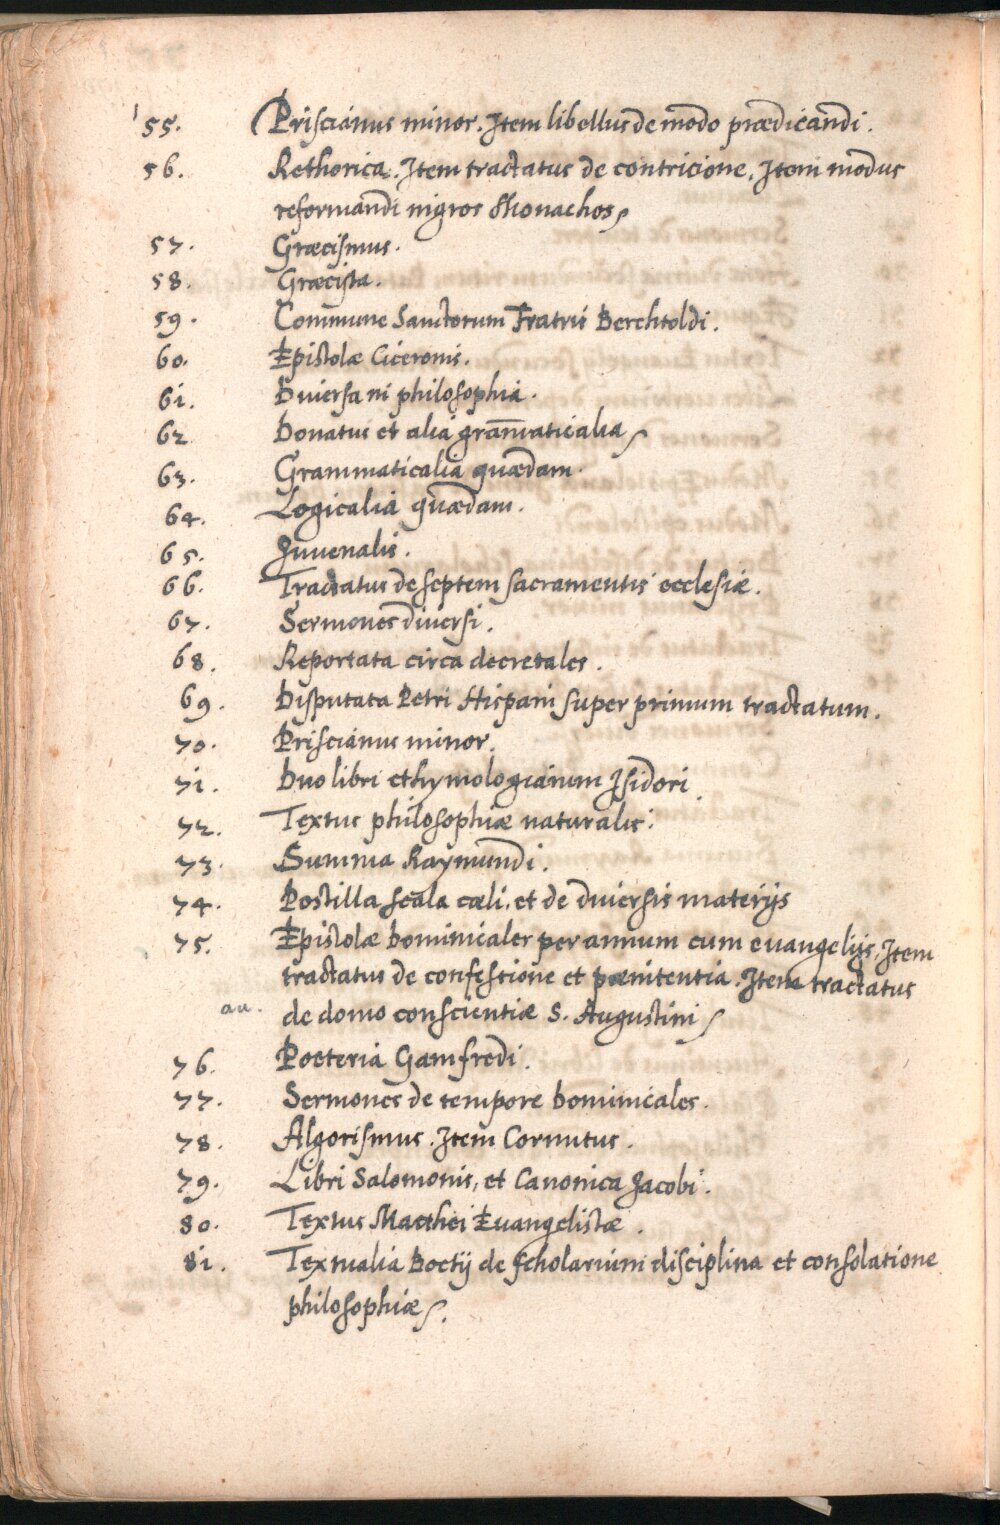 55. Priscianus minor. Item libellus de modo prædicandi.
56. Rethorica. Item tractatus de contricione. Item modus
reformandi nigros Monachos,
57. Græcismus.
58. Græcista.
59. Commune Sanctorum Fratris Berchtoldi.
60. Epistolæ Ciceronis.
61. Diversa in philosophia.
62 Donatus et alia gram̄aticalia
63. Grammaticalia quædam.
64. Logicalia quædam.
65. Juvenalis.
66. Tractatus de septem sacramentis ecclesiæ.
67. Sermones diversi.
68. Reportata circa decretales.
69. Disputata Petri Hispani super primum tractatum.
70. Priscianus minor.
71. Duo libri ethymologiarum Isidori.
72. Textus philosophiæ naturalis.
73. Summa Raymundi.
74. Postilla scala cæli, et de diversis materijs
75. Epistolæ Dominicales per annum cum evangelijs, Item
tractatus de confessione et pænitentia. Item tractatus
de domo conscientiæ S. Augustini
76. Poeteria Gamfredi.
77. Sermones de tempore Dominicales.
78. Algorismus. Item Cornutus.
79. Libri Salomonis, et Canonica Jacobi.
80. Textus Matthei Evangelistæ.
81. Textualia Boetij de scholarium disciplina et consolatione
philosophiæ.